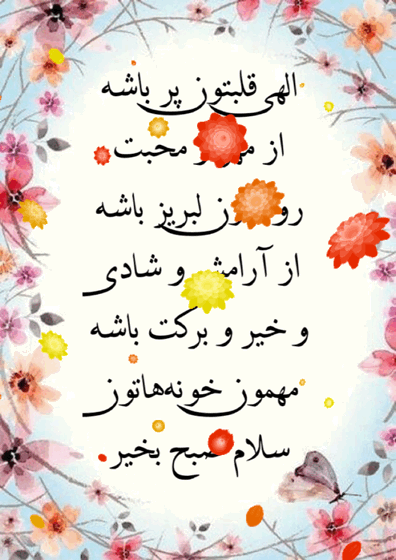 الهی قلبتون پر باشه
از مهر و محبت
روزتون لبریز باشه
از آرامش و شادی
و خیر و برکت باشه
مهمون خونه‌هاتون
سلام صبح بخیر.